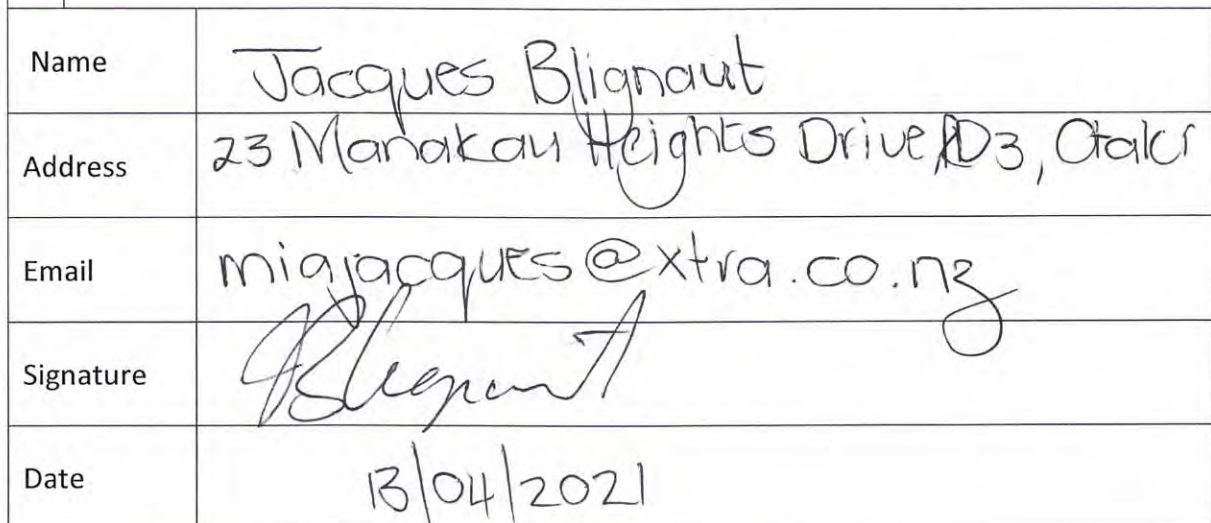 Name Jacques Blignaut
Address 23 Manakau Heights Drive, RD3, Otaki
Email miajacques@xtra.co.nz
Signature JBlignaut
Date 13/04/2021